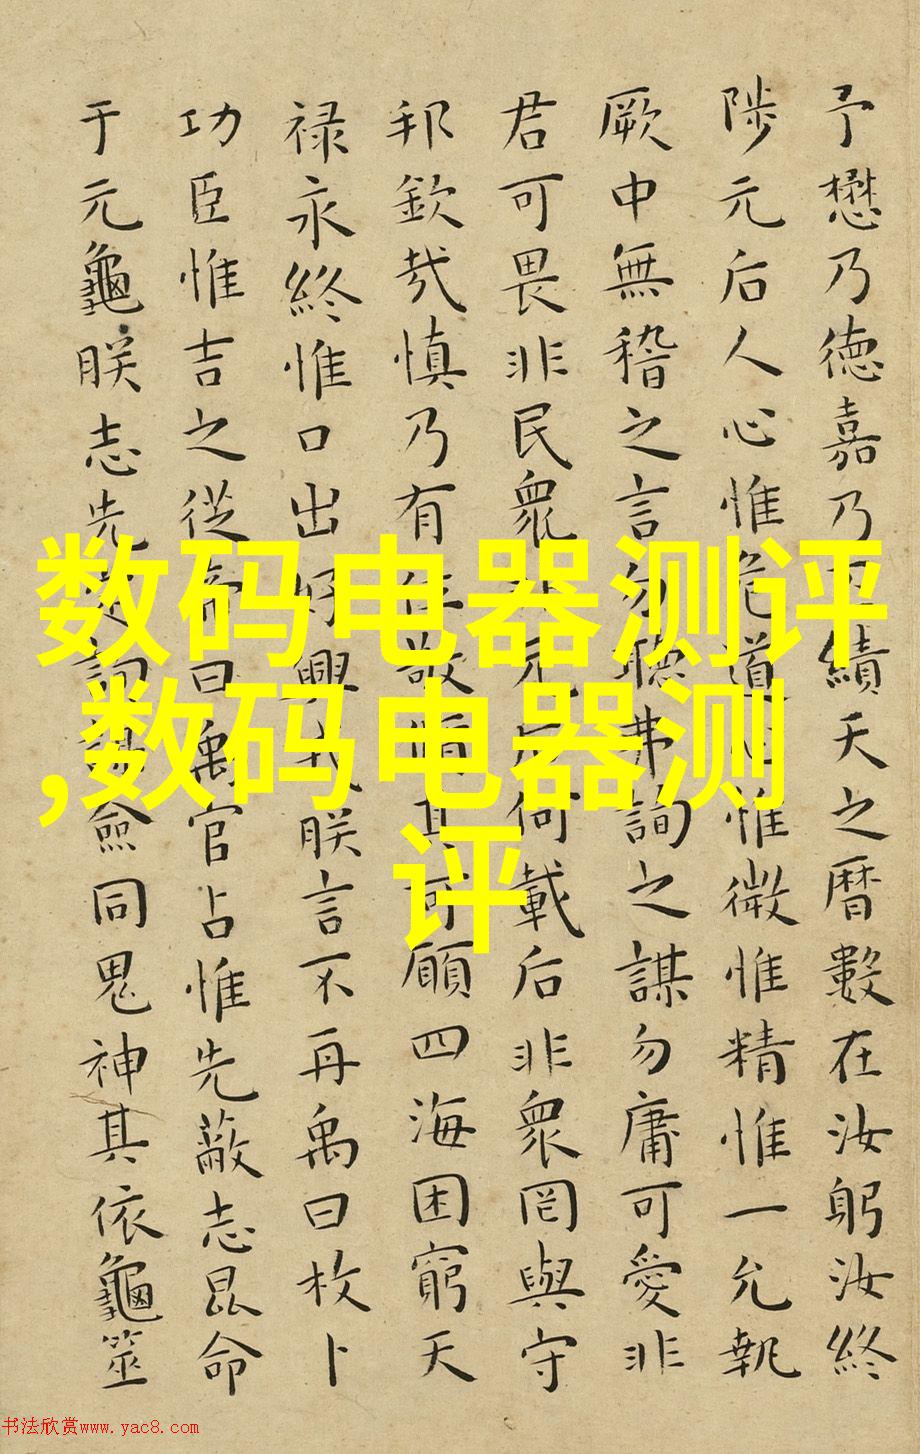 予懋乃德嘉乃丕績天之曆數在汝躬汝終
陟元后人心惟危道心惟微惟精惟一允執
厥中無稽之言勿聽弗詢之謀勿庸可愛非
君可畏非民衆非元后何載后非衆罔與守
邦欽哉慎乃有位敬脩其可願四海困窮天
禄永終惟口出好興戎朕言不再禹曰枚卜
功臣惟吉之從帝曰禹官占惟先蔽志昆命
于元龜朕志先定詢謀僉同鬼神其依龜筮
数码电器测评
,数码电器测
评
书法欣赏www.yac8.com